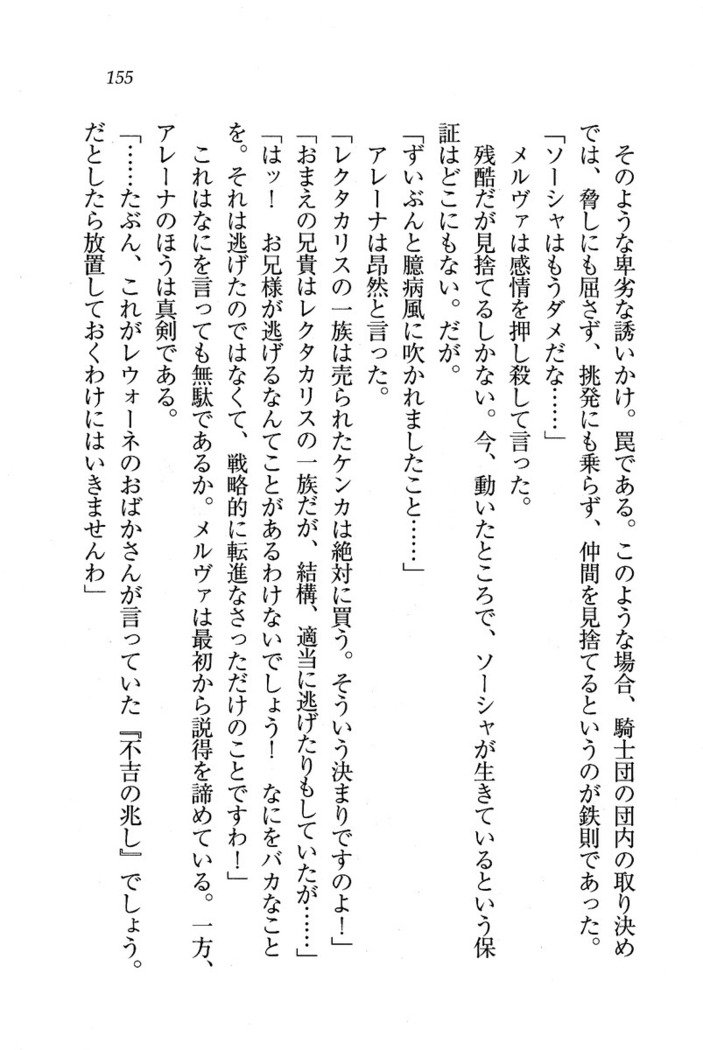 155
そのような卑劣な誘いかけ。罠である。このような場合、騎士団の団内の取り決め
では、脅しにも屈さず、挑発にも乗らず、仲間を見捨てるというのが鉄則であった。
「ソーシャはもうダメだな……」
メルヴァは感情を押し殺して言った。
残酷だが見捨てるしかない。今、動いたところで、ソーシャが生きているという保
証はどこにもない。だが。
「ずいぶんと臆病風に吹かれましたこと……」
アレーナは昂然と言った。
「レクタカリスの一族は売られたケンカは絶対に買う。そういう決まりですのよ！」
「おまえの兄貴はレクタカリスの一族だが、結構、適当に逃げたりもしていたが……」
「はッ！　お兄様が逃げるなんてことがあるわけないでしょう！　なにをバカなこと
を。それは逃げたのではなくて、戦略的に転進なさっただけのことですわ！」
これはなにを言っても無駄であるか。メルヴァは最初から説得を諦めている。一方、
アレーナのほうは真剣である。
「……たぶん、これがレウォーネのおばかさんが言っていた『不吉の兆し』でしょう。
だとしたら放置しておくわけにはいきませんわ」